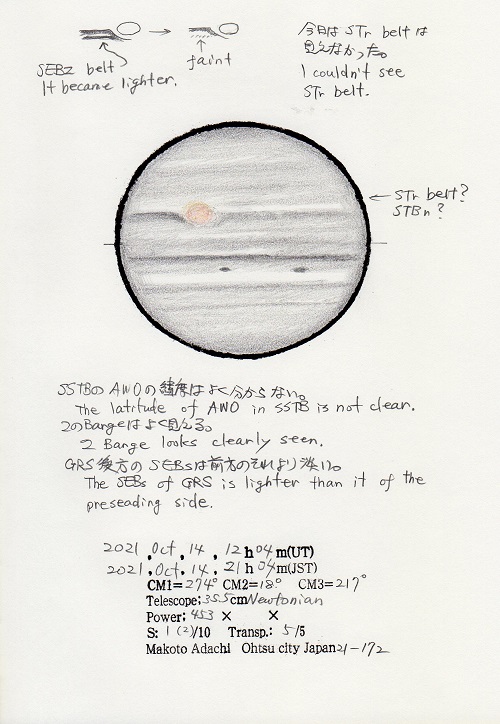 SEBZ belt
It became lighter.
faint
今日は STr belt は
見えなかった。
I couldn't see
STr belt.
STr belt?
STBn?
SSTBのAWOの緯度はよく分からない。
The latitude of AWO in SSTB is not clear.
2のBargeはよく見える。
2 Barge looks clearly seen.
GRS後方のSEBsは前方のそれより淡い。
The SEBs of GRS is lighter than it of the
preseading side.
2021, Oct, 14, 12h 04m(UT)
2021, Oct, 14, 21h 04m(JST)
CM1=274° CM2=18° CM3=217°
Telescope; 35.5cm Newtonian
Power; 453 × ×
S: 1 (2)/10 Transp.: 5/5
Makoto Adachi Ohtsu city Japan 21-172